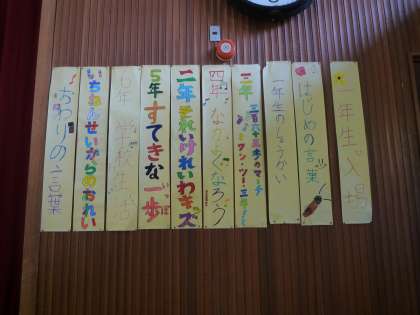 一年生。入場
はじめの言葉
一年生のしょうかい
三年
三百六十五歩のマーチ
ワン・ツー三年!
四年 なかよくなろう
二年 それいけれいわキッズ
5年 すてきな一歩
6年 学校生活
いちねんせいからのおれい
おわりの言葉